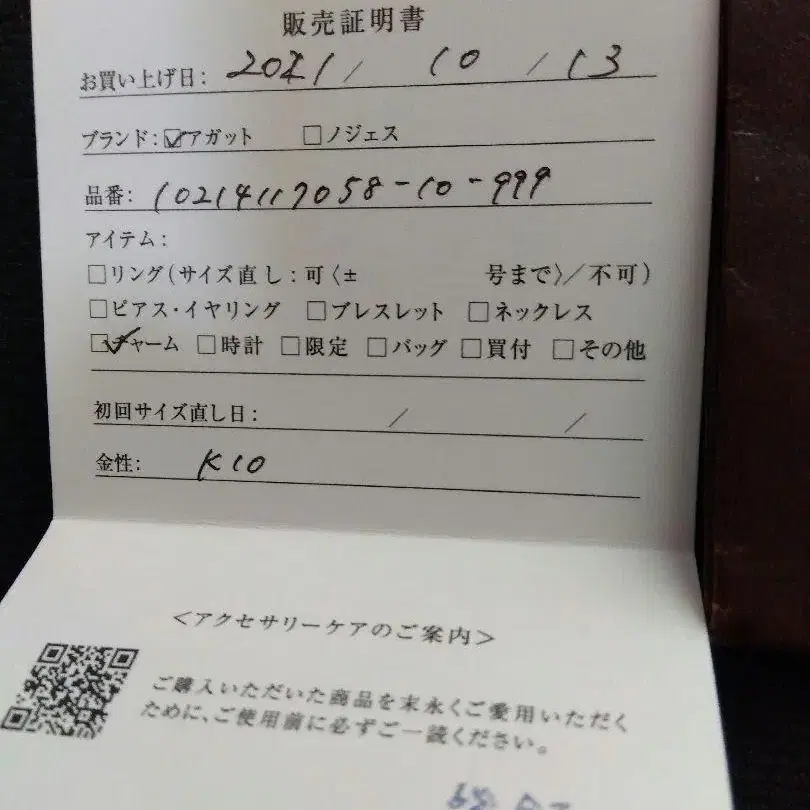 販売証明書
お買い上げ日: 2021 / 10 / 13
ブランド: ☑アガット □ノジェス
品番: 10214117058-10-999
アイテム:
□リング(サイズ直し:可〈± 号まで〉/不可)
□ピアス・イヤリング □ブレスレット □ネックレス
☑チャーム □時計 □限定 □バッグ □買付 □その他
初回サイズ直し日: / /
金性: K10
<アクセサリーケアのご案内>
ご購入いただいた商品を末永くご愛用いただく
ために、ご使用前に必ずご一読ください。